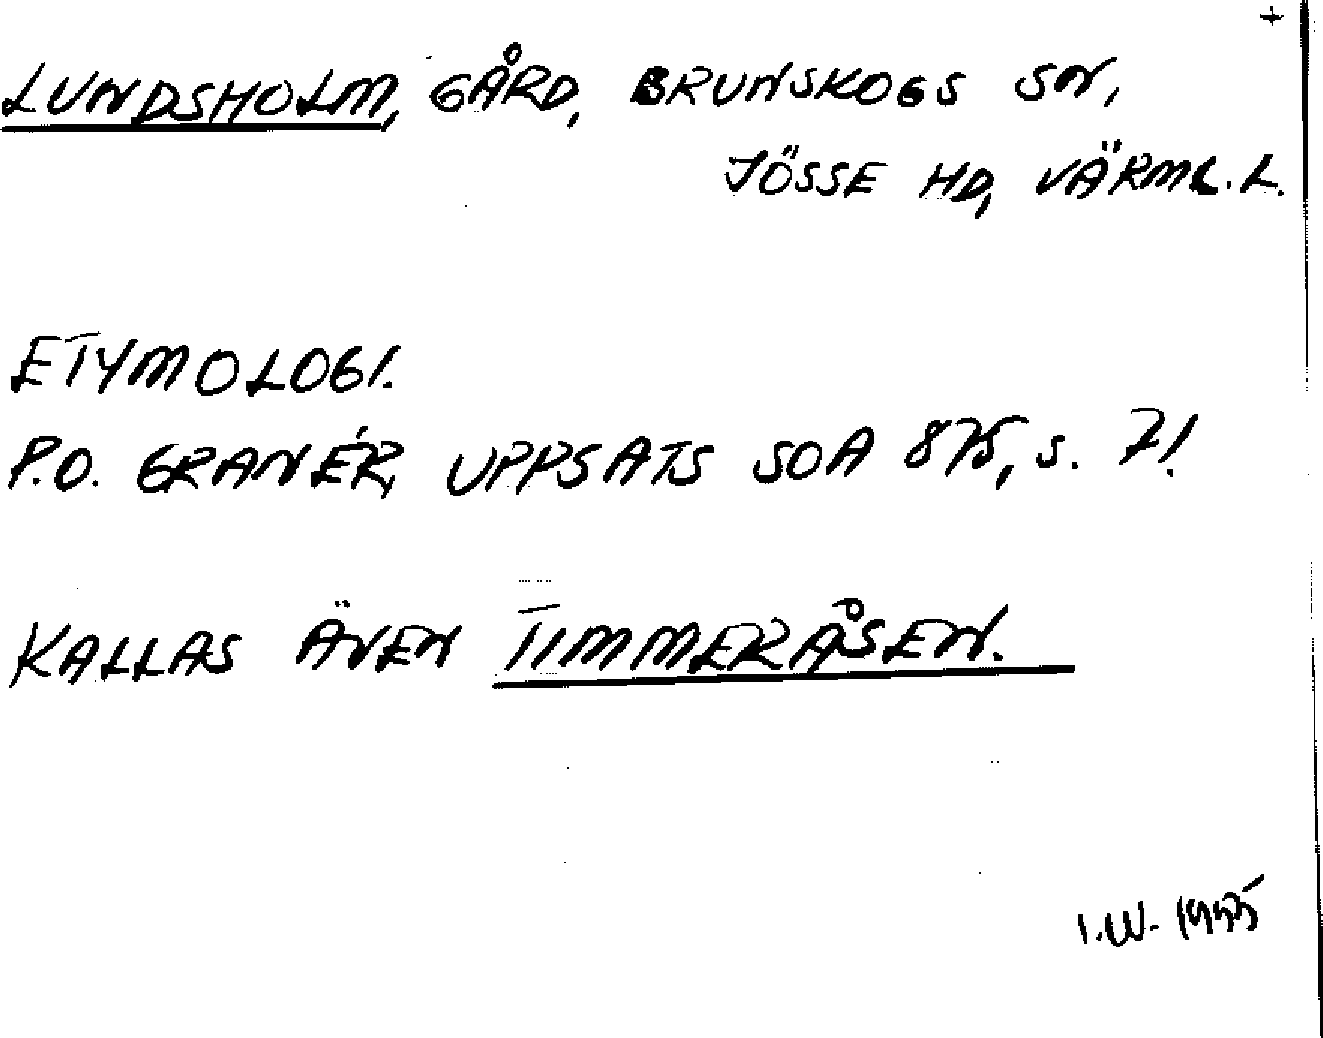 +
LUNDSHOLM, GÅRD, BRUNSKOGS SN,
JÖSSE HD, VÄRML. L.
ETYMOLOGI.
P.O. GRANÉR, UPPSATS SOA 875, s. 71.
KALLAS ÄVEN TIMMERÅSEN.
I.W. 1955